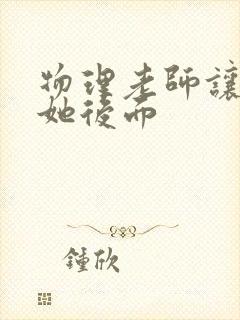 物理老師讓
她後面
鍾欣